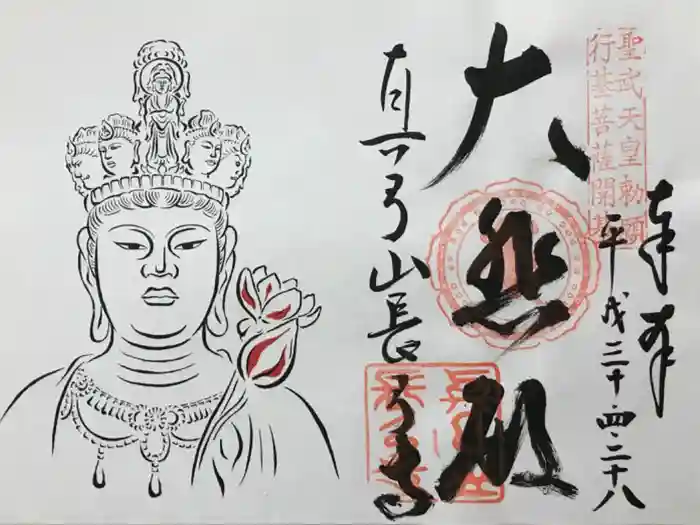 聖武天皇勅願
行基菩薩開基
奉拝
平成三十・四・二十八
大悲殿
真弓山長弓寺